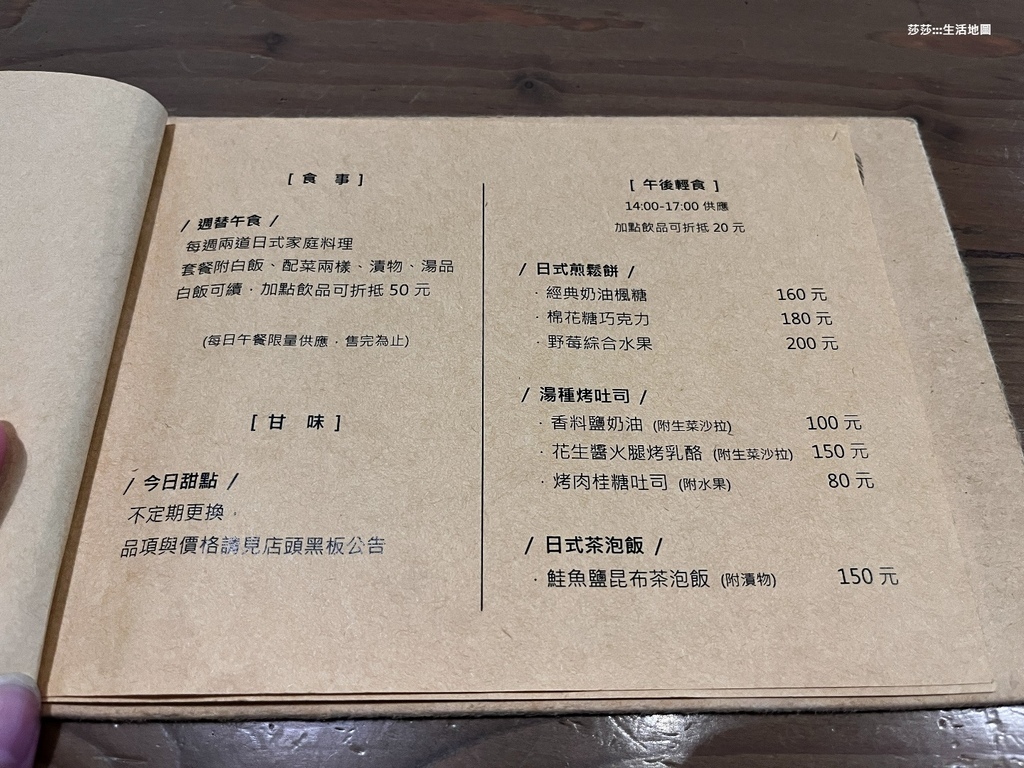 莎莎:::生活地圖
[ 食 事 ]
/ 週替午食 /
每週兩道日式家庭料理
套餐附白飯、配菜兩樣、漬物、湯品
白飯可續．加點飲品可折抵 50 元
(每日午餐限量供應．售完為止)
[ 甘 味 ]
/ 今日甜點 /
不定期更換．
品項與價格請見店頭黑板公告
[ 午後輕食 ]
14:00-17:00 供應
加點飲品可折抵 20 元
/ 日式煎鬆餅 /
．經典奶油楓糖 160 元
．棉花糖巧克力 180 元
．野莓綜合水果 200 元
/ 湯種烤吐司 /
．香料鹽奶油 (附生菜沙拉) 100 元
．花生醬火腿烤乳酪 (附生菜沙拉) 150 元
．烤肉桂糖吐司 (附水果) 80 元
/ 日式茶泡飯 /
．鮭魚鹽昆布茶泡飯 (附漬物) 150 元